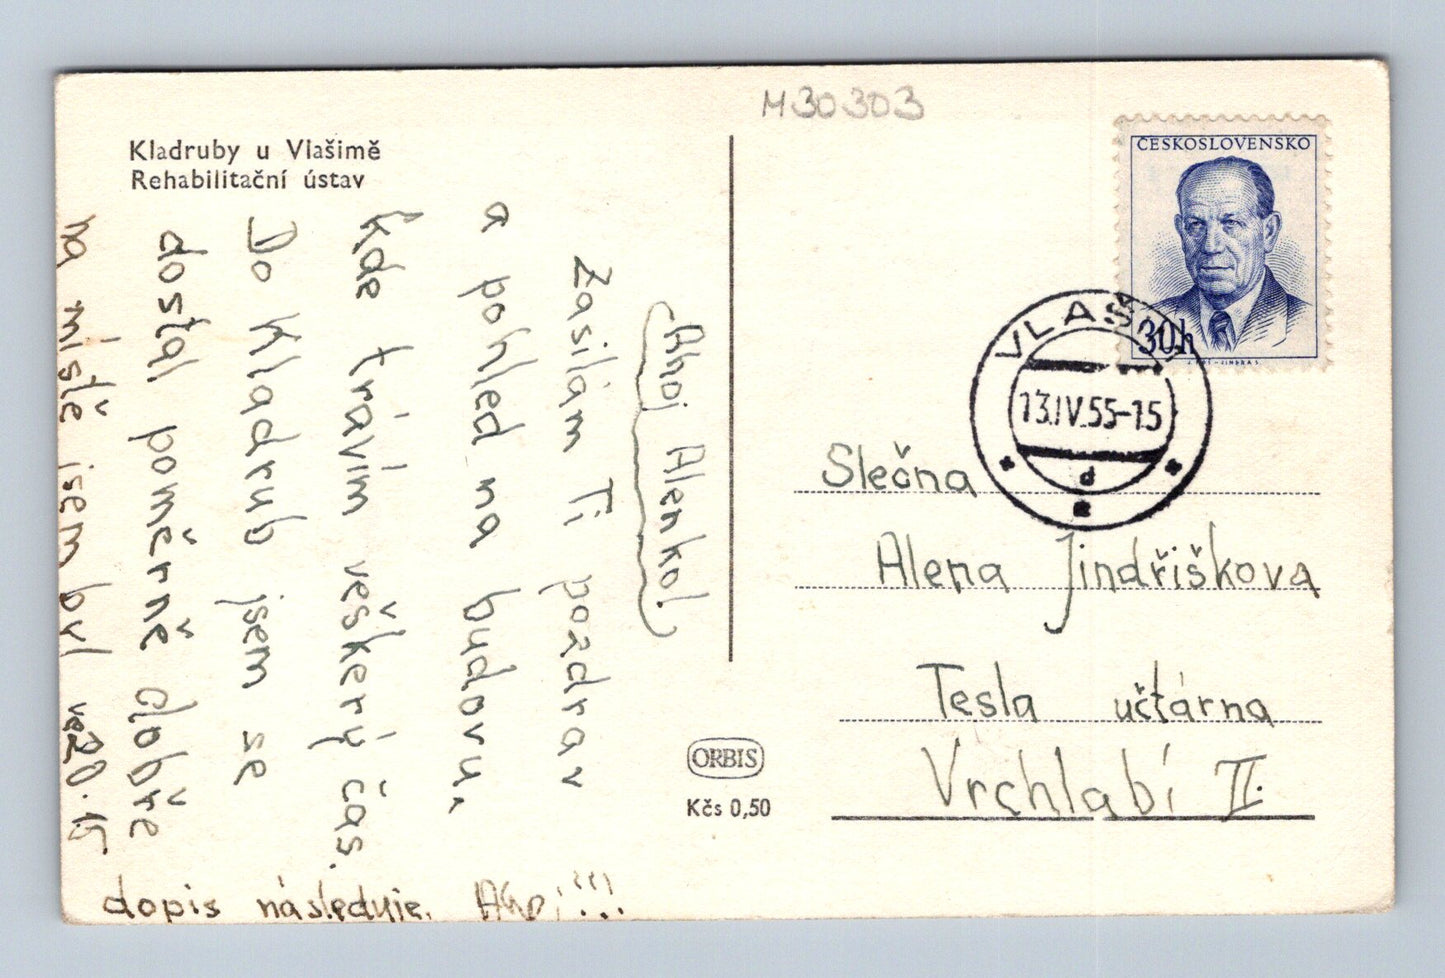 M30303
Kladruby u Vlašimě
Rehabilitační ústav
Ahoj Alenko!
Zasílám Ti pozdrav
a pohled na budovu,
kde trávím veškerý čas.
Do Kladrub jsem se
dostal poměrně dobře
na místě jsem byl ve 20.15
dopis následuje. Ahoj!!!
ORBIS
Kčs 0,50
ČESKOSLOVENSKO
30h
VLAŠIM
13.IV.55-15
d
Slečna
Alena Jindřiškova
Tesla učtárna
Vrchlabí II.